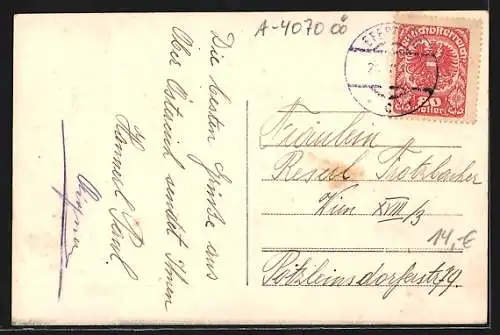 A-4070 OÖ
EFER
Deutschösterreich
20
Heller
Die besten Grüße aus
Ober Östereich sendet Ihnen
Hammerl Paul.
Fräulein
Reserl Trotzbacher
Wien XVIII/3
Pötzleinsdorferstr 79.
14,-€